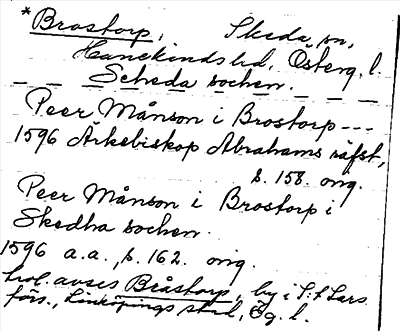 * Brostorp, Skeda sn,
Hanekinds hd, Österg. l.
Scheda sochen.
Peer Månson i Brostorp ---
1596 Ärkebiskop Abrahams räfst,
s. 158. orig.
Peer Månson i Brostorp i
Skedha sochen.
1596 a.a., s. 162. orig.
trol. avses Bråstorp, by i S:t Lars
förs., Linköpings stad, Ög. l.